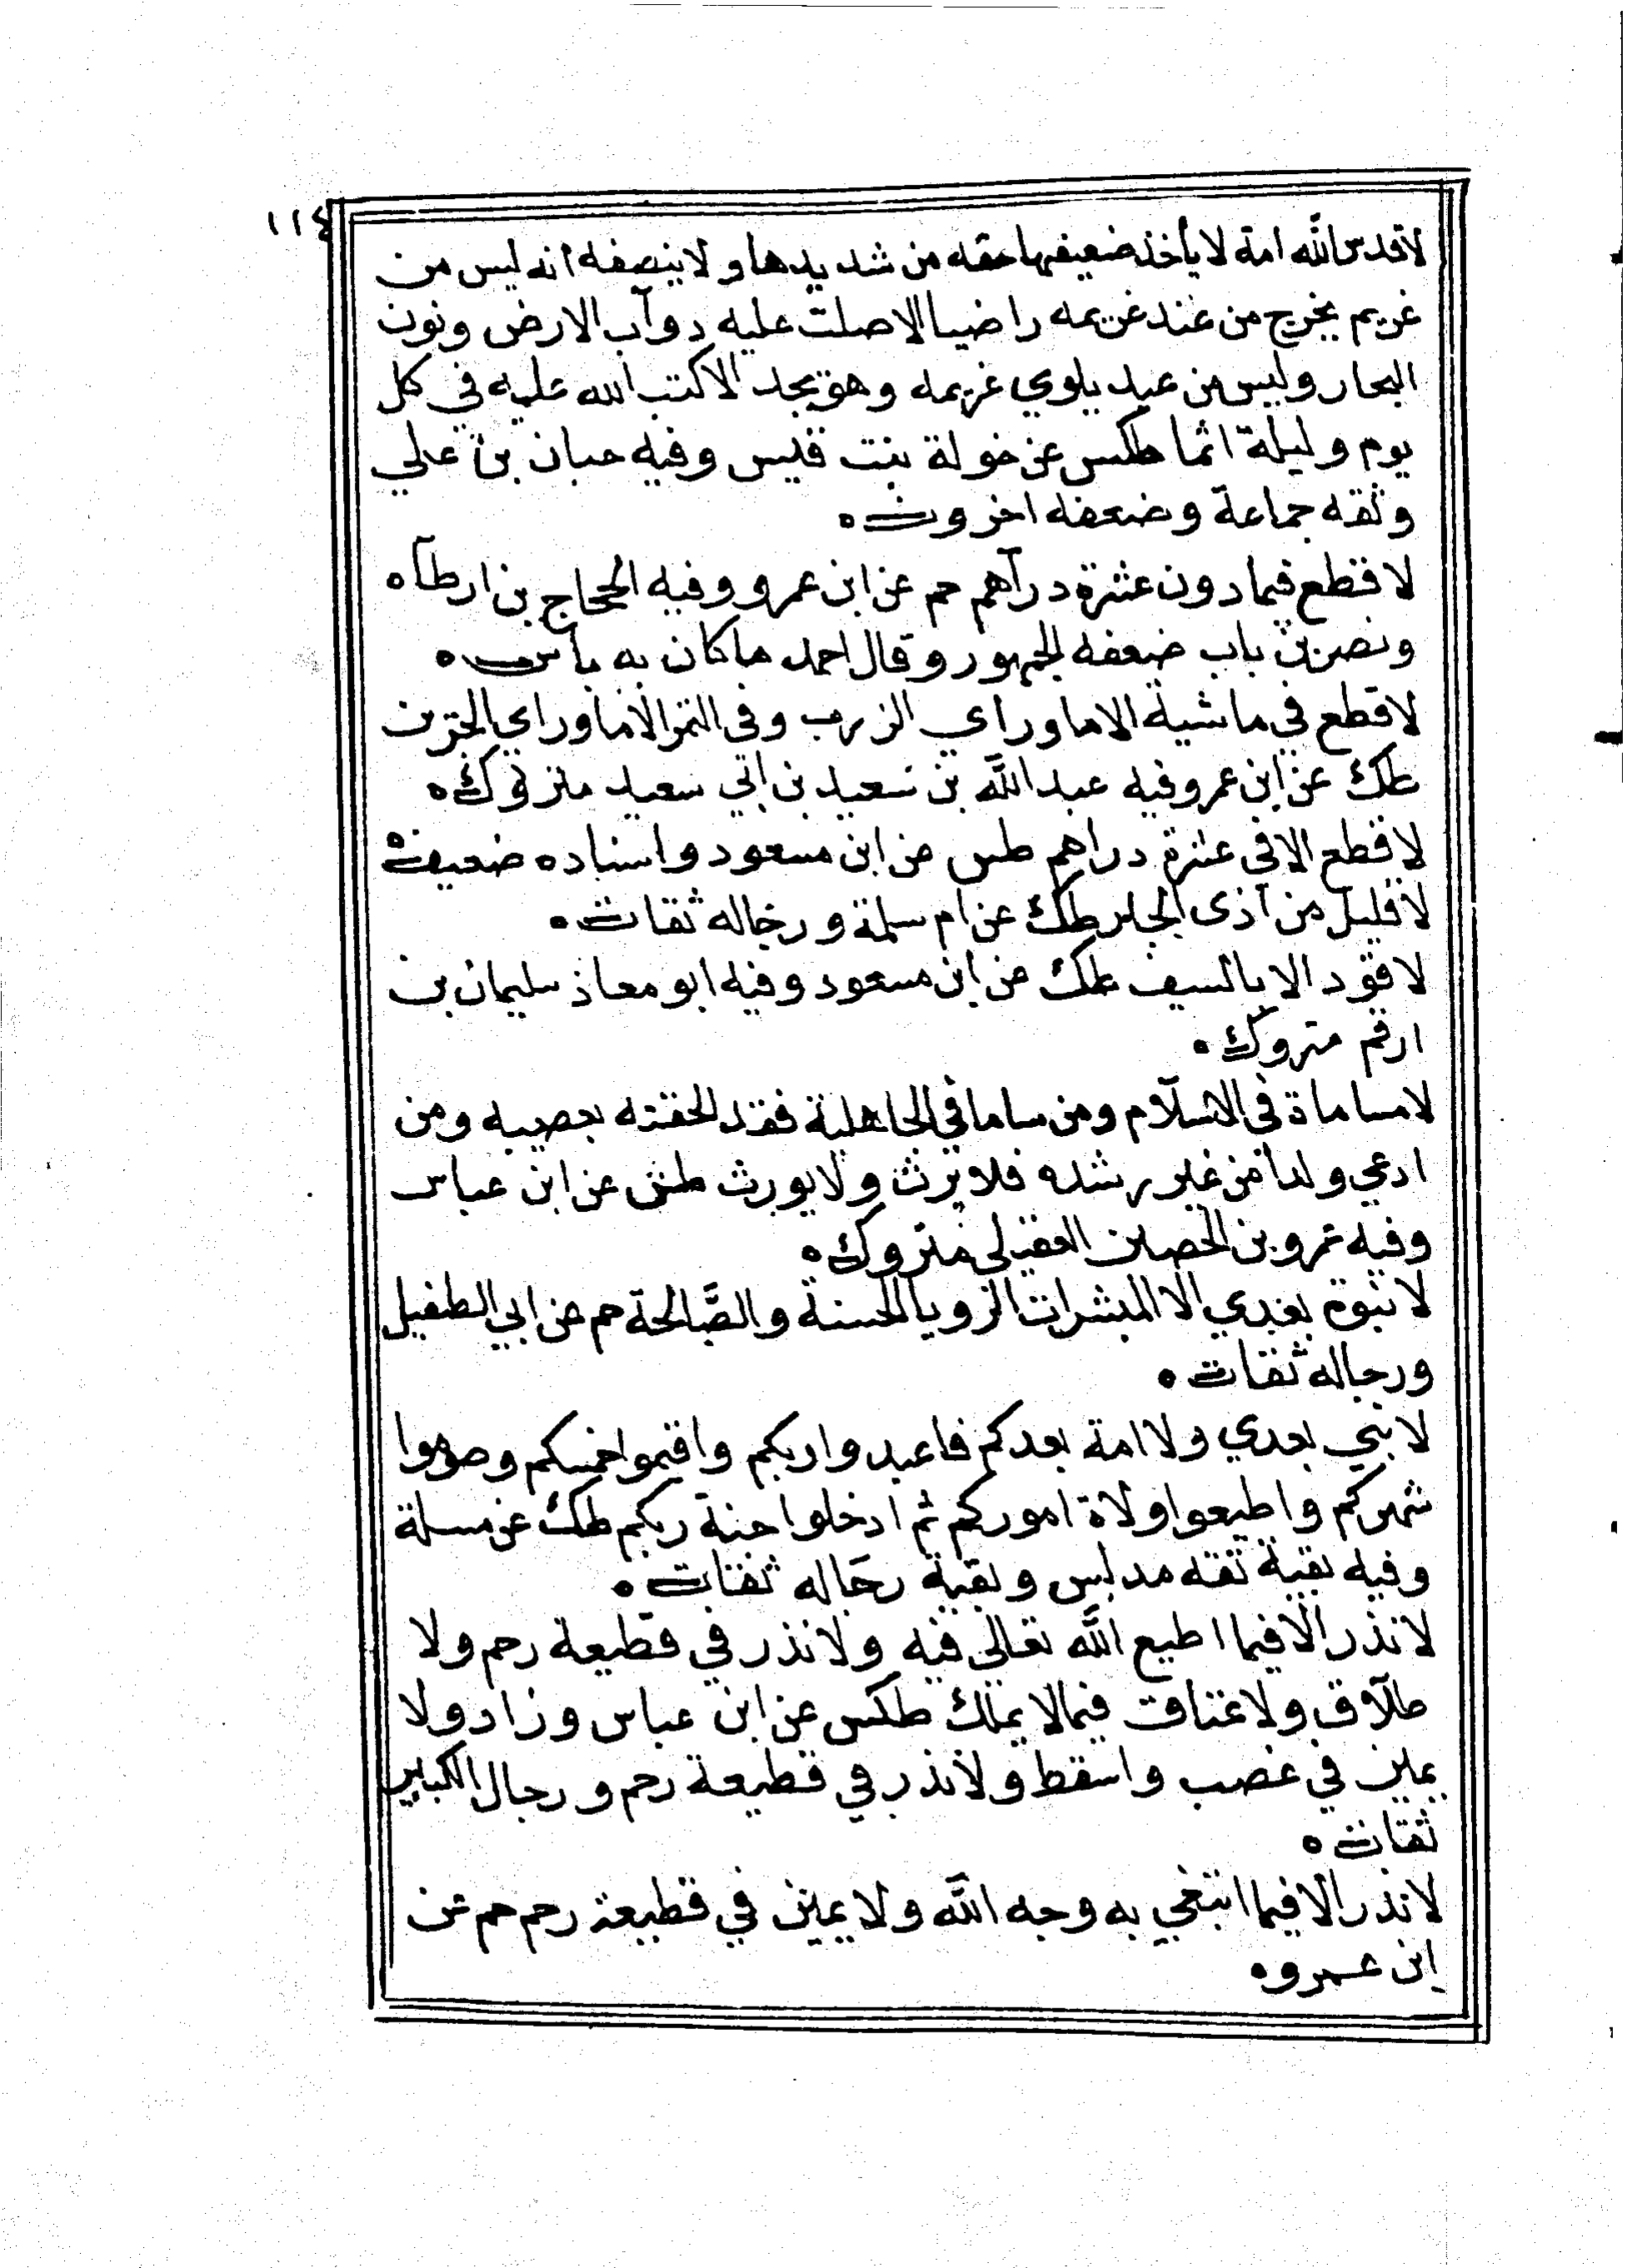 ١١٤
لاقدس الله امة لا يأخذ ضعيفها حقه من شديدها ولا ينصفه انه ليس من
غريم يخرج من عند غريمه راضيا الا صلت عليه دوآب الارض ونون
البحار وليس من عبد يلوي غريمه وهو يجد الا كتب الله عليه في كل
يوم وليلة اثما طكس عن خولة بنت قيس وفيه حبان بن علي
وثقه جماعة وضعفه اخرون ه
لا قطع فيما دون عشرة درآهم حم عن ابن عمرو وفيه الحجاج بن ارطآه
ونصر بن باب ضعفه الجمهور وقال احمد ما كان به بأس ه
لا قطع في ماشية الا ما وراي الزرب وفي التمر الا ما وراي الجرين
طك عن ابن عمر وفيه عبد الله بن سعيد بن ابي سعيد متروك ه
لا قطع الا في عشرة دراهم طس عن ابن مسعود واسناده ضعيف ه
لا قليل من آذى الجار طك عن ام سلمة ورجاله ثقات ه
لا قود الا بالسيف طك عن ابن مسعود وفيه ابو معاذ سليمان بن
ارقم متروك ه
لا مساماة في الاسلآم ومن ساما في الجاهلية فقد الحقته بعصبه ومن
ادعي ولدا من غير رشده فلا يرث ولا يورث طس عن ابن عباس
وفيه عمرو بن الحصين العقيلي متروك ه
لا نبوة بعدي الا المبشرات الرويا الحسنة والصَّالحة حم عن ابي الطفيل
ورجاله ثقات ه
لا نبي بعدي ولا امة بعدكم فاعبدوا ربكم واقيموا خمسكم وصوموا
شهركم واطيعوا ولاة اموركم ثم ادخلوا جنة ربكم طك عن مسلمة
وفيه بقية ثقه مدلس وبقية رجاله ثقات ه
لا نذر الا فيما اطيع الله تعالى فيه ولا نذر في قطيعة رحم ولا
طلآق ولا عتاق فيما لا يملك طكس عن ابن عباس وزاد ولا
يمين في غضب واسقط ولا نذر في قطيعة رحم ورجال الكبير
ثقات ه
لا نذر الا فيما ابتغي به وجه الله ولا يمين في قطيعة رحم حم عن
ابن عمرو ه